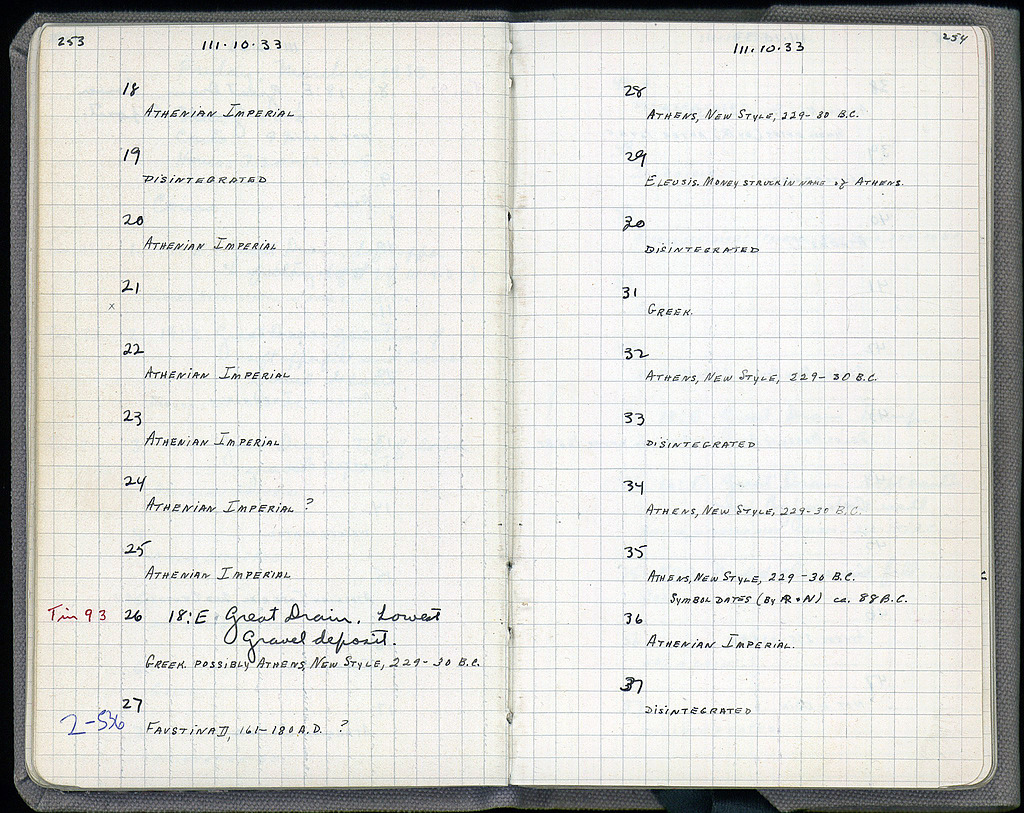 253
111·10·33
18
ATHENIAN IMPERIAL
19
DISINTEGRATED
20
ATHENIAN IMPERIAL
21
x
22
ATHENIAN IMPERIAL
23
ATHENIAN IMPERIAL
24
ATHENIAN IMPERIAL ?
25
ATHENIAN IMPERIAL
Tin 93 26 18:E Great Drain. Lowest
Gravel deposit.
GREEK. POSSIBLY ATHENS, NEW STYLE, 229-30 B.C.
27
2-536 FAUSTINA II, 161-180 A.D. ?
254
111.10.33
28
ATHENS, NEW STYLE, 229-30 B.C.
29
ELEUSIS. MONEY STRUCK IN NAME of ATHENS.
30
DISINTEGRATED
31
GREEK.
32
ATHENS, NEW STYLE, 229-30 B.C.
33
DISINTEGRATED
34
ATHENS, NEW STYLE, 229-30 B.C.
35
ATHENS, NEW STYLE, 229-30 B.C.
SYMBOL DATES (BY R+N) ca. 88 B.C.
36
ATHENIAN IMPERIAL.
37
DISINTEGRATED